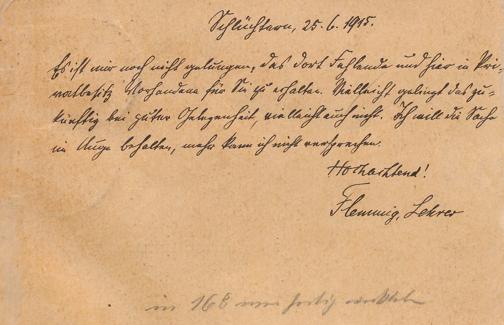 Schlüchtern, 25.6.1915.
Es ist mir noch nicht gelungen, das dort Fehlende und hier in Pri-
vatbesitz Vorhandene für Sie zu erhalten. Vielleicht gelingt das zu-
künftig bei guter Gelegenheit, vielleicht auch nicht. Ich will die Sache
im Auge behalten, mehr kann ich nicht versprechen.
Hochachtend!
Flemmig, Lehrer
in 168